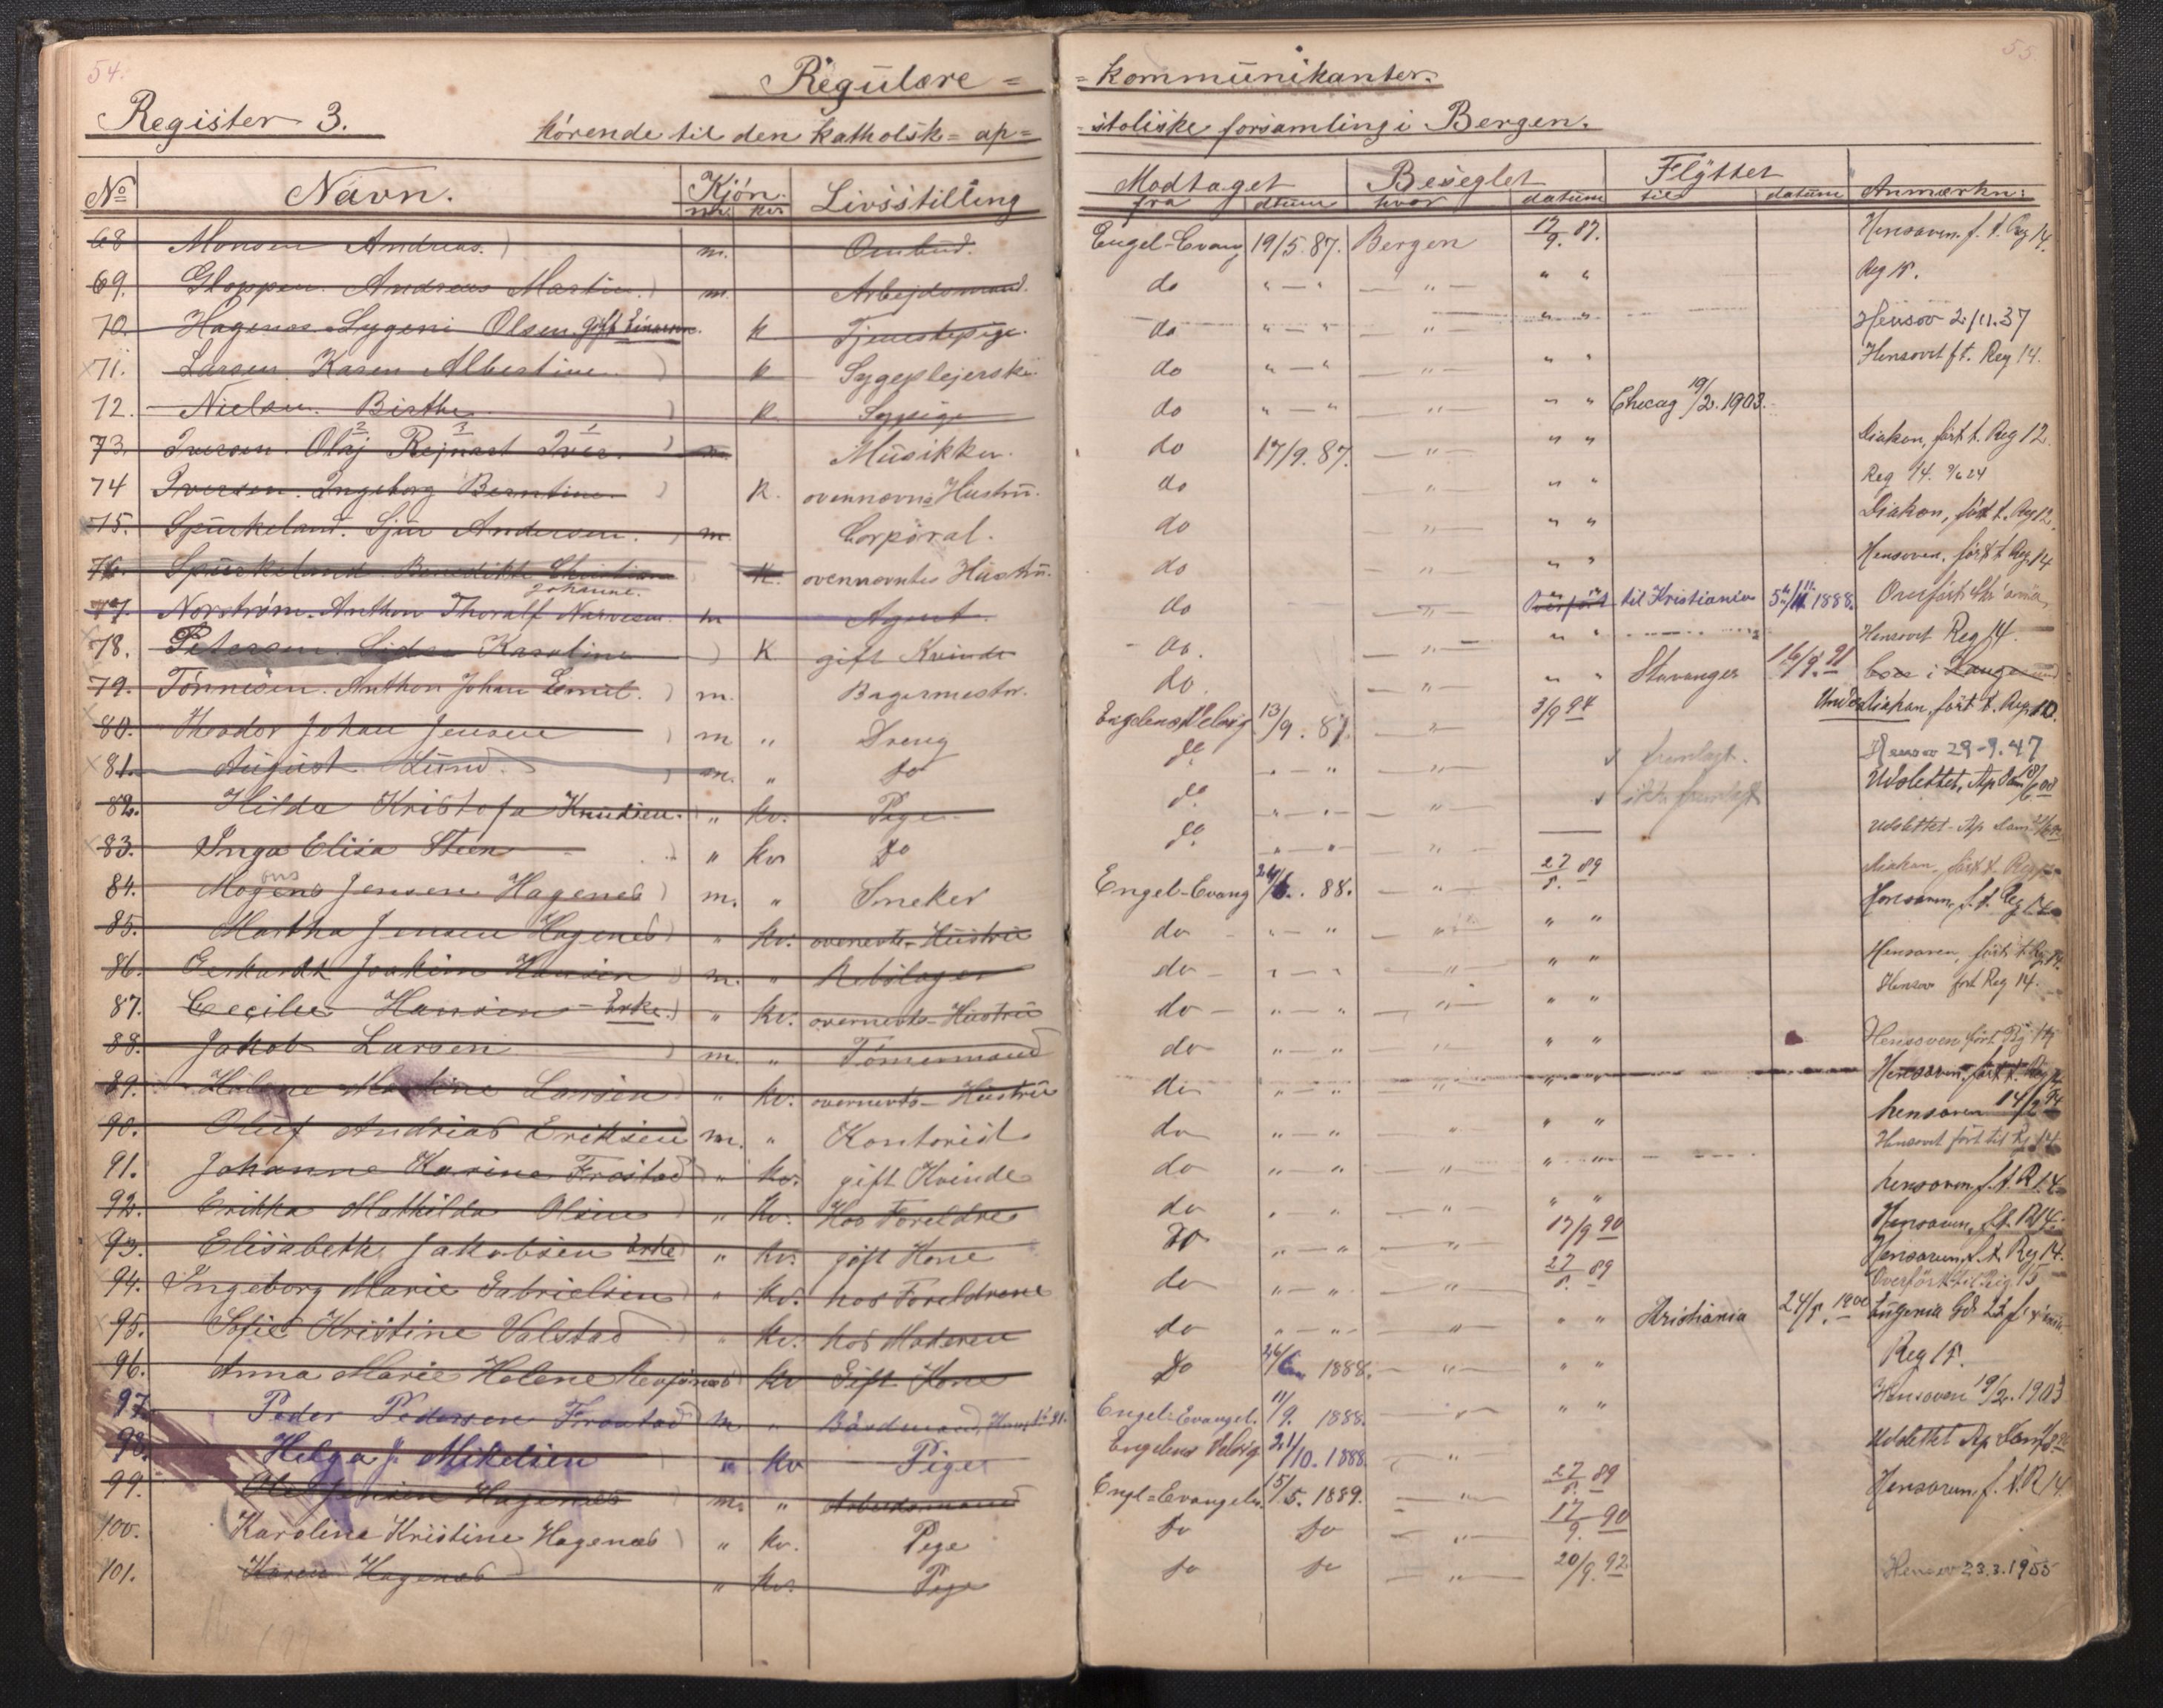 54.
55
Regulære = = kommunikanter.
Register 3. hørende til den katholsk= ap= =stoliske forsamling i Bergen.
No Navn. Kjön. Livsstilling Modtaget Beseglet Flyttet Anmærkn:
mk. kv. fra datum hvor datum til datum
68 Monsen Andreas. m. Ombud. Engel-Evang 19/5.87. Bergen 17/9. 87. Hensoven. f. t. Reg 14.
69. Gloppen. Andreas Martin. m. Arbejdsmand. do " — " — " — " " Reg 15.
70. Hagenæs Lygeni Olsen, gift Einarsen. k Tjenestepige. do " — " — " — " " Hensov 2/11.37
71. Larsen Karen Albertine. k Sygeplejerske. do " — " — " — " " Hensovet f t. Reg 14.
72. Nielsen. Birthe k. Sypige do " — " — " — " " Chicag 19/2. 1903.
73. Iversen. Olaj 2 Rejnart 3 Iver. 1 m. Musikker. do 17/9. 87. — " — " " Diakon, ført t. Reg 12.
74 Iversen. Ingeborg Berntine. k. ovennævns Hustru. do — " — " " Reg 14.
75. Spurkeland. Sjur Andersen. m. Corporal. do — " — " " Diakon, ført t. Reg 12.
76. Spurkeland Benedikte Christiane Johanne. k. ovennævntes Hustru. do — " — " " Hensoven, ført t Reg. 14
77. Norström. Anthon Thoralf m Agent. do — " — Overført til Kristiania 1888.
78. Petersen. Karoline K gift Kvinde do. — " — " " Hensovet Reg 14.
79. Tönnesen. Anthon Johan Emil. m. Bagermester. do. — " — " " Stavanger 16/9. 91 boe i Langesund
80. Theodor Johan Jensen m " Dreng Engelens Velsig 13/9. 87. — " — 3/9 94 Underdiakon, ført t. Reg. 10.
81. August Lund. m. " do do " — " — " — fremlagt. Hensov 29-9.47
82. Hilda Kristofa Knudsen. " kv. Pige do " — " — " — ikke fremlagt Udslettet, Ap
83. Inga Elisa Steen " kv do do " — " — " — — Udslettet - Ap
84. Mogens ons Jensen Hagenes m. " Snekker Engel-Evang 88. — " — 27/5. 89 Diakon, ført t. Reg
85. Martha Jensen Hagenes " kv. ovenevts-Hustru do " — " — " — " " Hensoven, f. t. Reg 14
86. Gerhardt Joakim Hansen m. " Rebslager do " — " — " — " " Hensoven, ført t Reg. 14.
87. Cecilie Hansen - Enke. " kv. overnevts-Hustru do " — " — " — " " Hensov ført Reg 14.
88. Jakob Larsen m. " Tömermand do " — " — " — " " Hensoven, ført Reg 14
89. Helene Martine Larsen " kv. overnevts-Hustru do " — " — " — " " Hensoven, ført t. Reg
90. Oluf Andrias Eriksen m. " Kontorist do " — " — " — " " hensoven 14/2 94
91. Johanne Karine Frostad " kv. gift Kvinde do " — " — " — " " Hensovet ført til Rg. 14
92. Erikka Mathilda Olsen " kv. Hos Foreldre do " — " — " — " " hensoven, f. t. R 14
93. Elisabeth Jakobsen Enke " kv. gift Kone do " — " — " — 17/9 90 Hensoven, f. t. R 14.
94. Ingeborg Marie Gabrielsen " kv. hos Foreldrene do " — " — " — 27/5. 89 Hensoven f. t. Reg 14.
Overført til Reg. 15
95. Sofie Kristine Valstad " kv. hos Moderen do " — " — " — " " Kristiania 24/5. 1900 Eugenia
96. Anna Marie Helene kv Gift Kone do 1888. — " — " " Reg 15.
97. Peder Pedersen Frostad m " Engel-Evangel. 11/9. 1888. — " — " " Hensoven 19/2. 1903
98. Helga J. Mikelsen " kv Pige Engelens Velsig 21/10. 1888. — " — Udslettet Ap
99. Ole Jensen Hagenes m. " Arbeidsmand Engl=Evangeliu. 15/5. 1889. — " — 27/5. 89 Hensoven, f. t. R 14.
100. Karoline Kristine Hagenæs " kv. Pige do do — " — 17/9. 90
101. Karen Hagenæs " kv. Pige do do — " — 20/9. 92. Hensov 23.3.1955